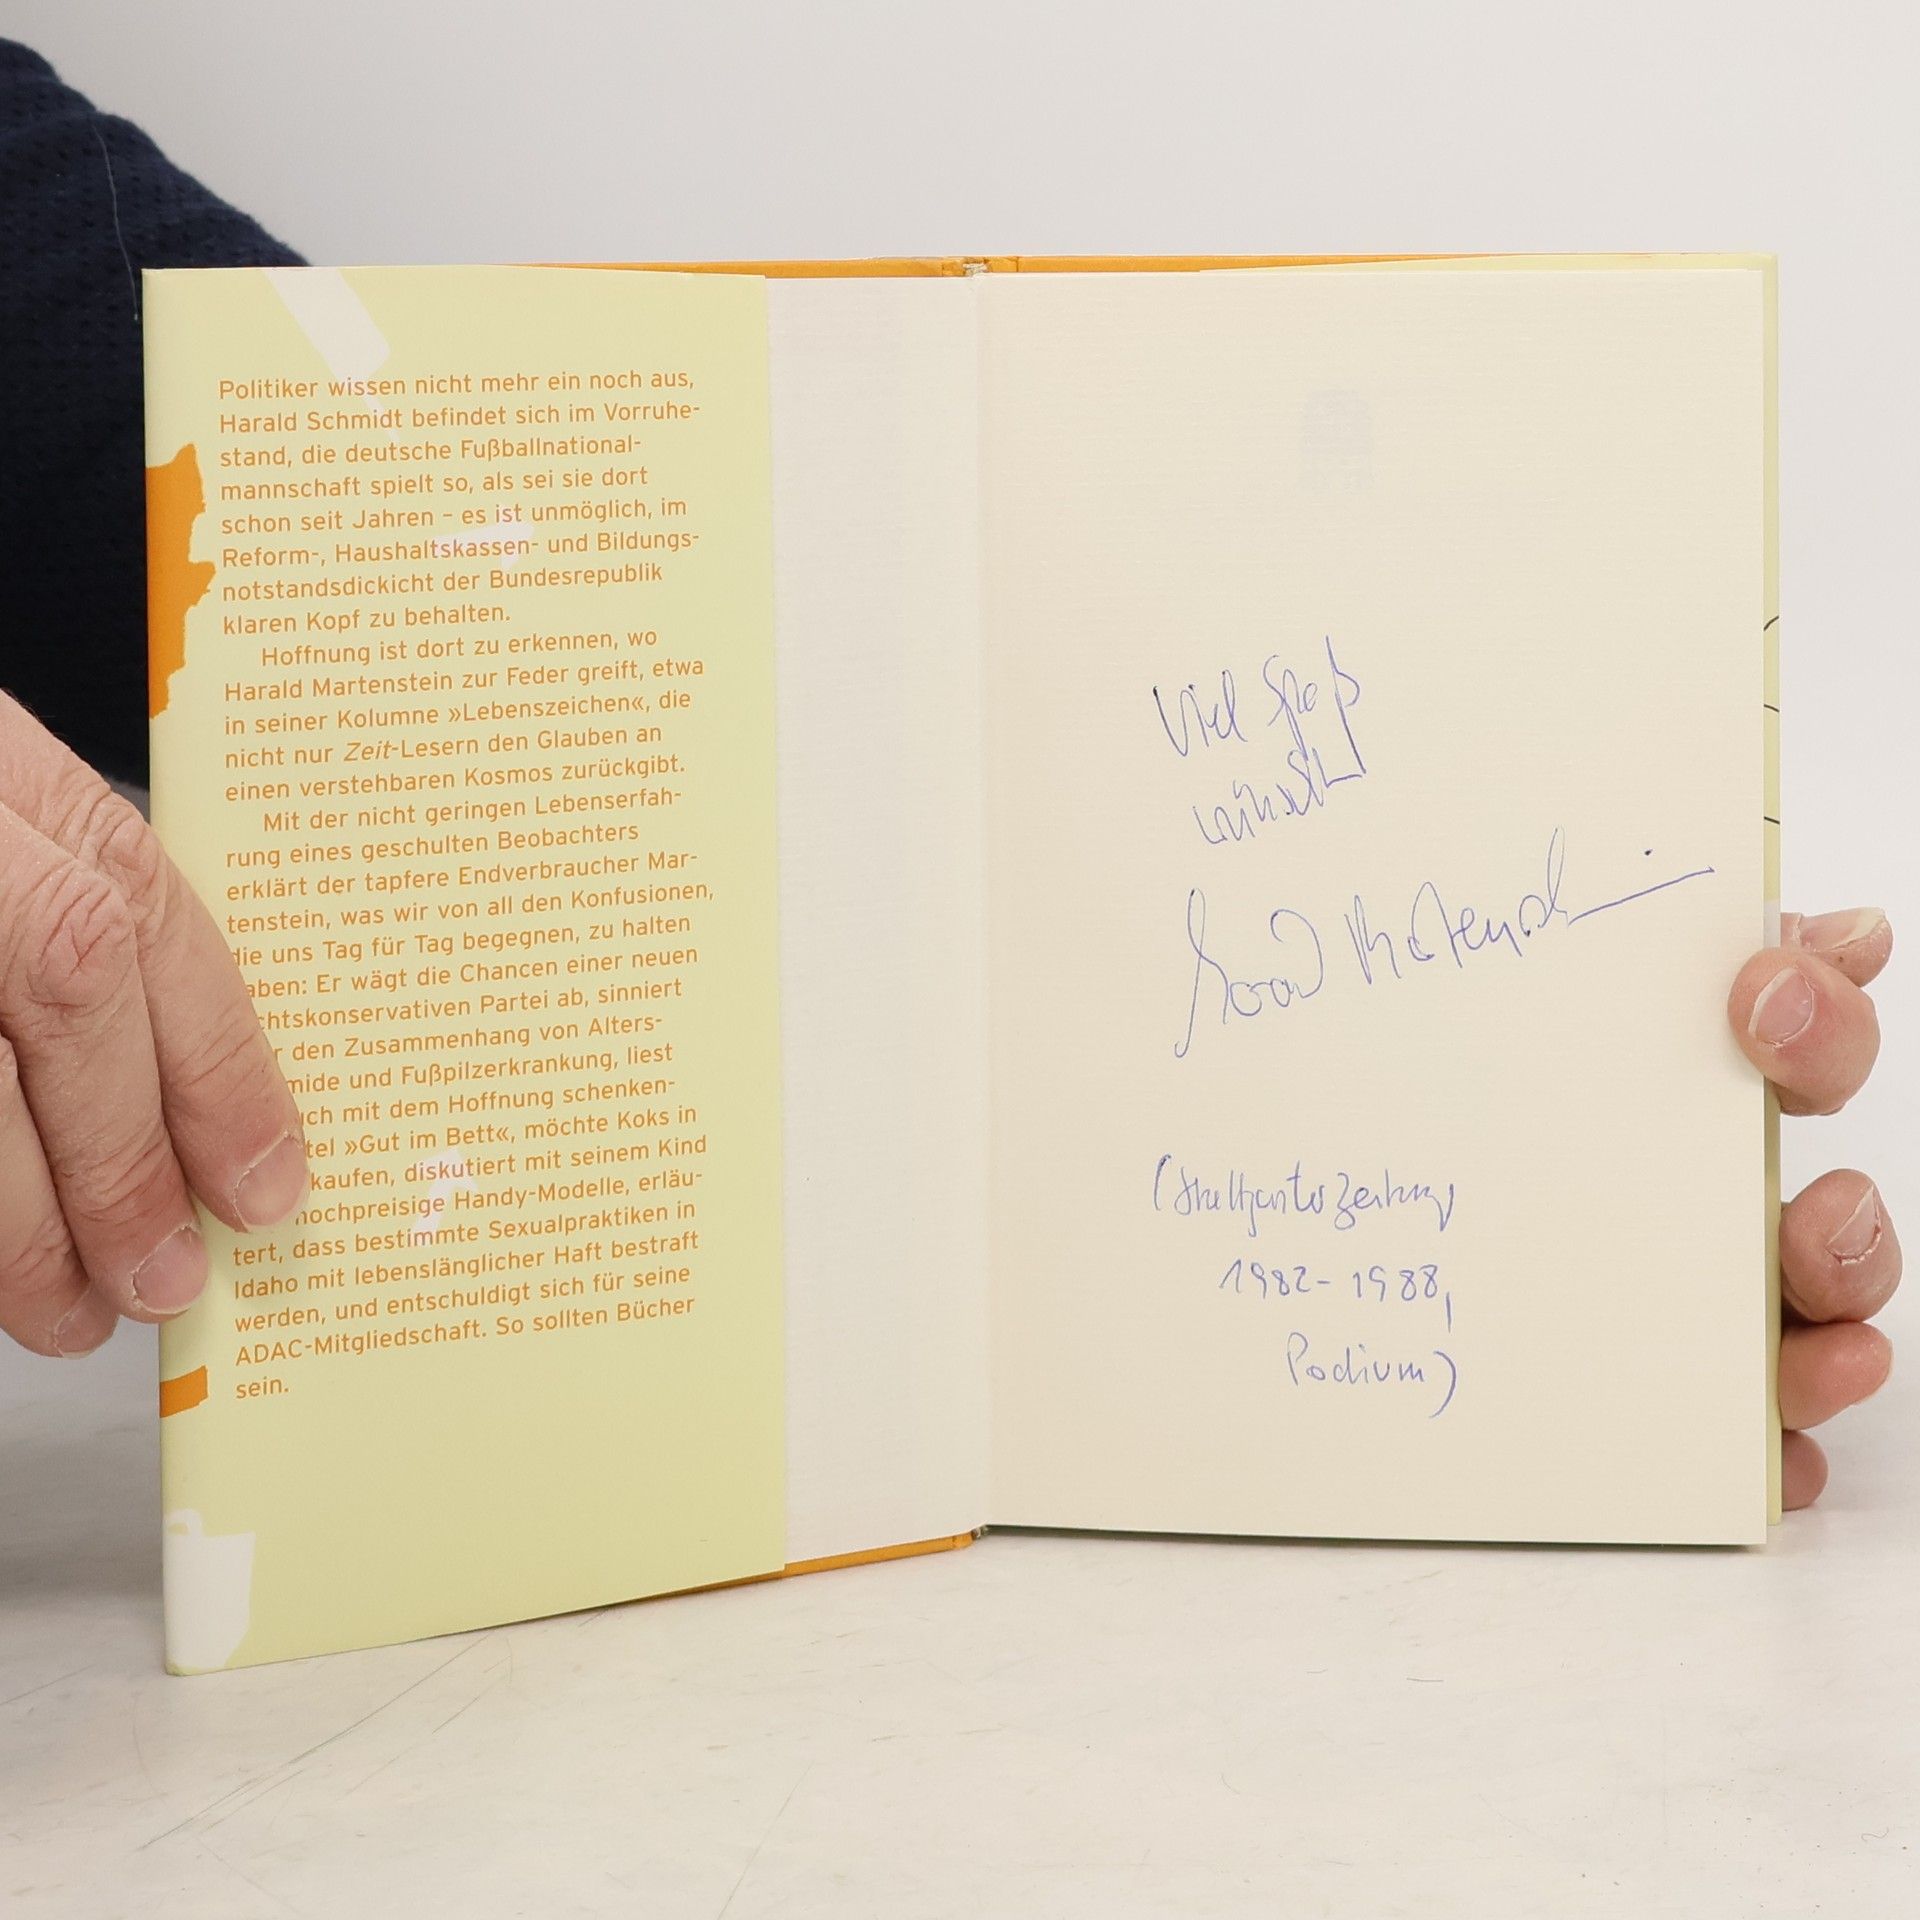 Politiker wissen nicht mehr ein noch aus,
Harald Schmidt befindet sich im Vorruhe-
stand, die deutsche Fußballnational-
mannschaft spielt so, als sei sie dort
schon seit Jahren – es ist unmöglich, im
Reform-, Haushaltskassen- und Bildungs-
notstandsdickicht der Bundesrepublik
klaren Kopf zu behalten.
Hoffnung ist dort zu erkennen, wo
Harald Martenstein zur Feder greift, etwa
in seiner Kolumne »Lebenszeichen«, die
nicht nur Zeit-Lesern den Glauben an
einen verstehbaren Kosmos zurückgibt.
Mit der nicht geringen Lebenserfah-
rung eines geschulten Beobachters
erklärt der tapfere Endverbraucher Mar-
tenstein, was wir von all den Konfusionen,
die uns Tag für Tag begegnen, zu halten
aben: Er wägt die Chancen einer neuen
chtskonservativen Partei ab, sinniert
r den Zusammenhang von Alters-
mide und Fußpilzerkrankung, liest
uch mit dem Hoffnung schenken-
tel »Gut im Bett«, möchte Koks in
kaufen, diskutiert mit seinem Kind
hochpreisige Handy-Modelle, erläu-
tert, dass bestimmte Sexualpraktiken in
Idaho mit lebenslänglicher Haft bestraft
werden, und entschuldigt sich für seine
ADAC-Mitgliedschaft. So sollten Bücher
sein.
Viel Spaß
wünscht
Harald Martenstein
(Stuttgarter Zeitung
1982-1988,
Podium)